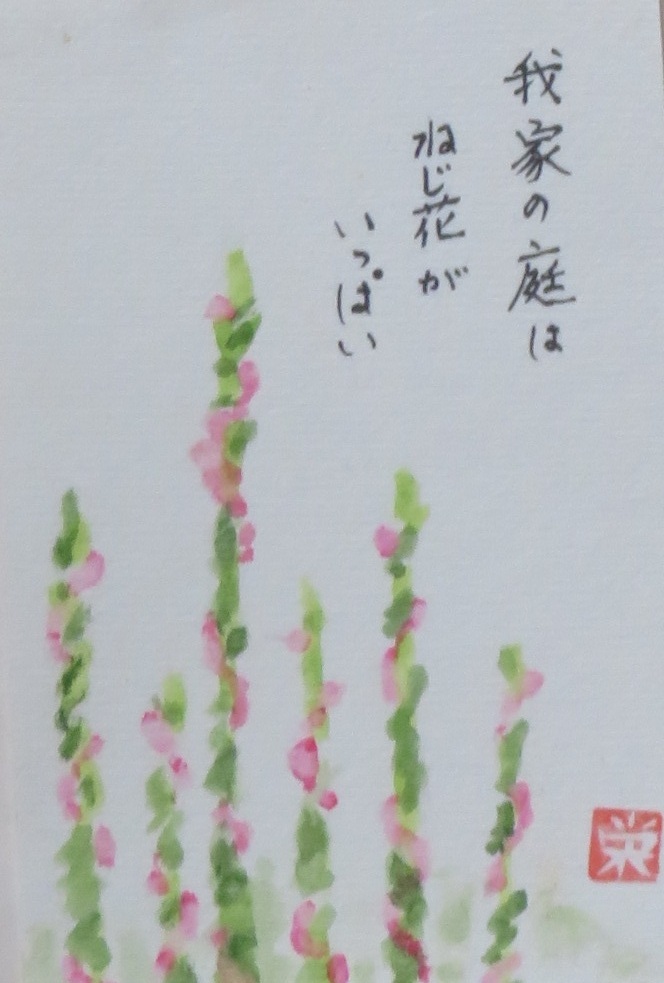 我家の庭は
ねじ花が
いっぱい
栄